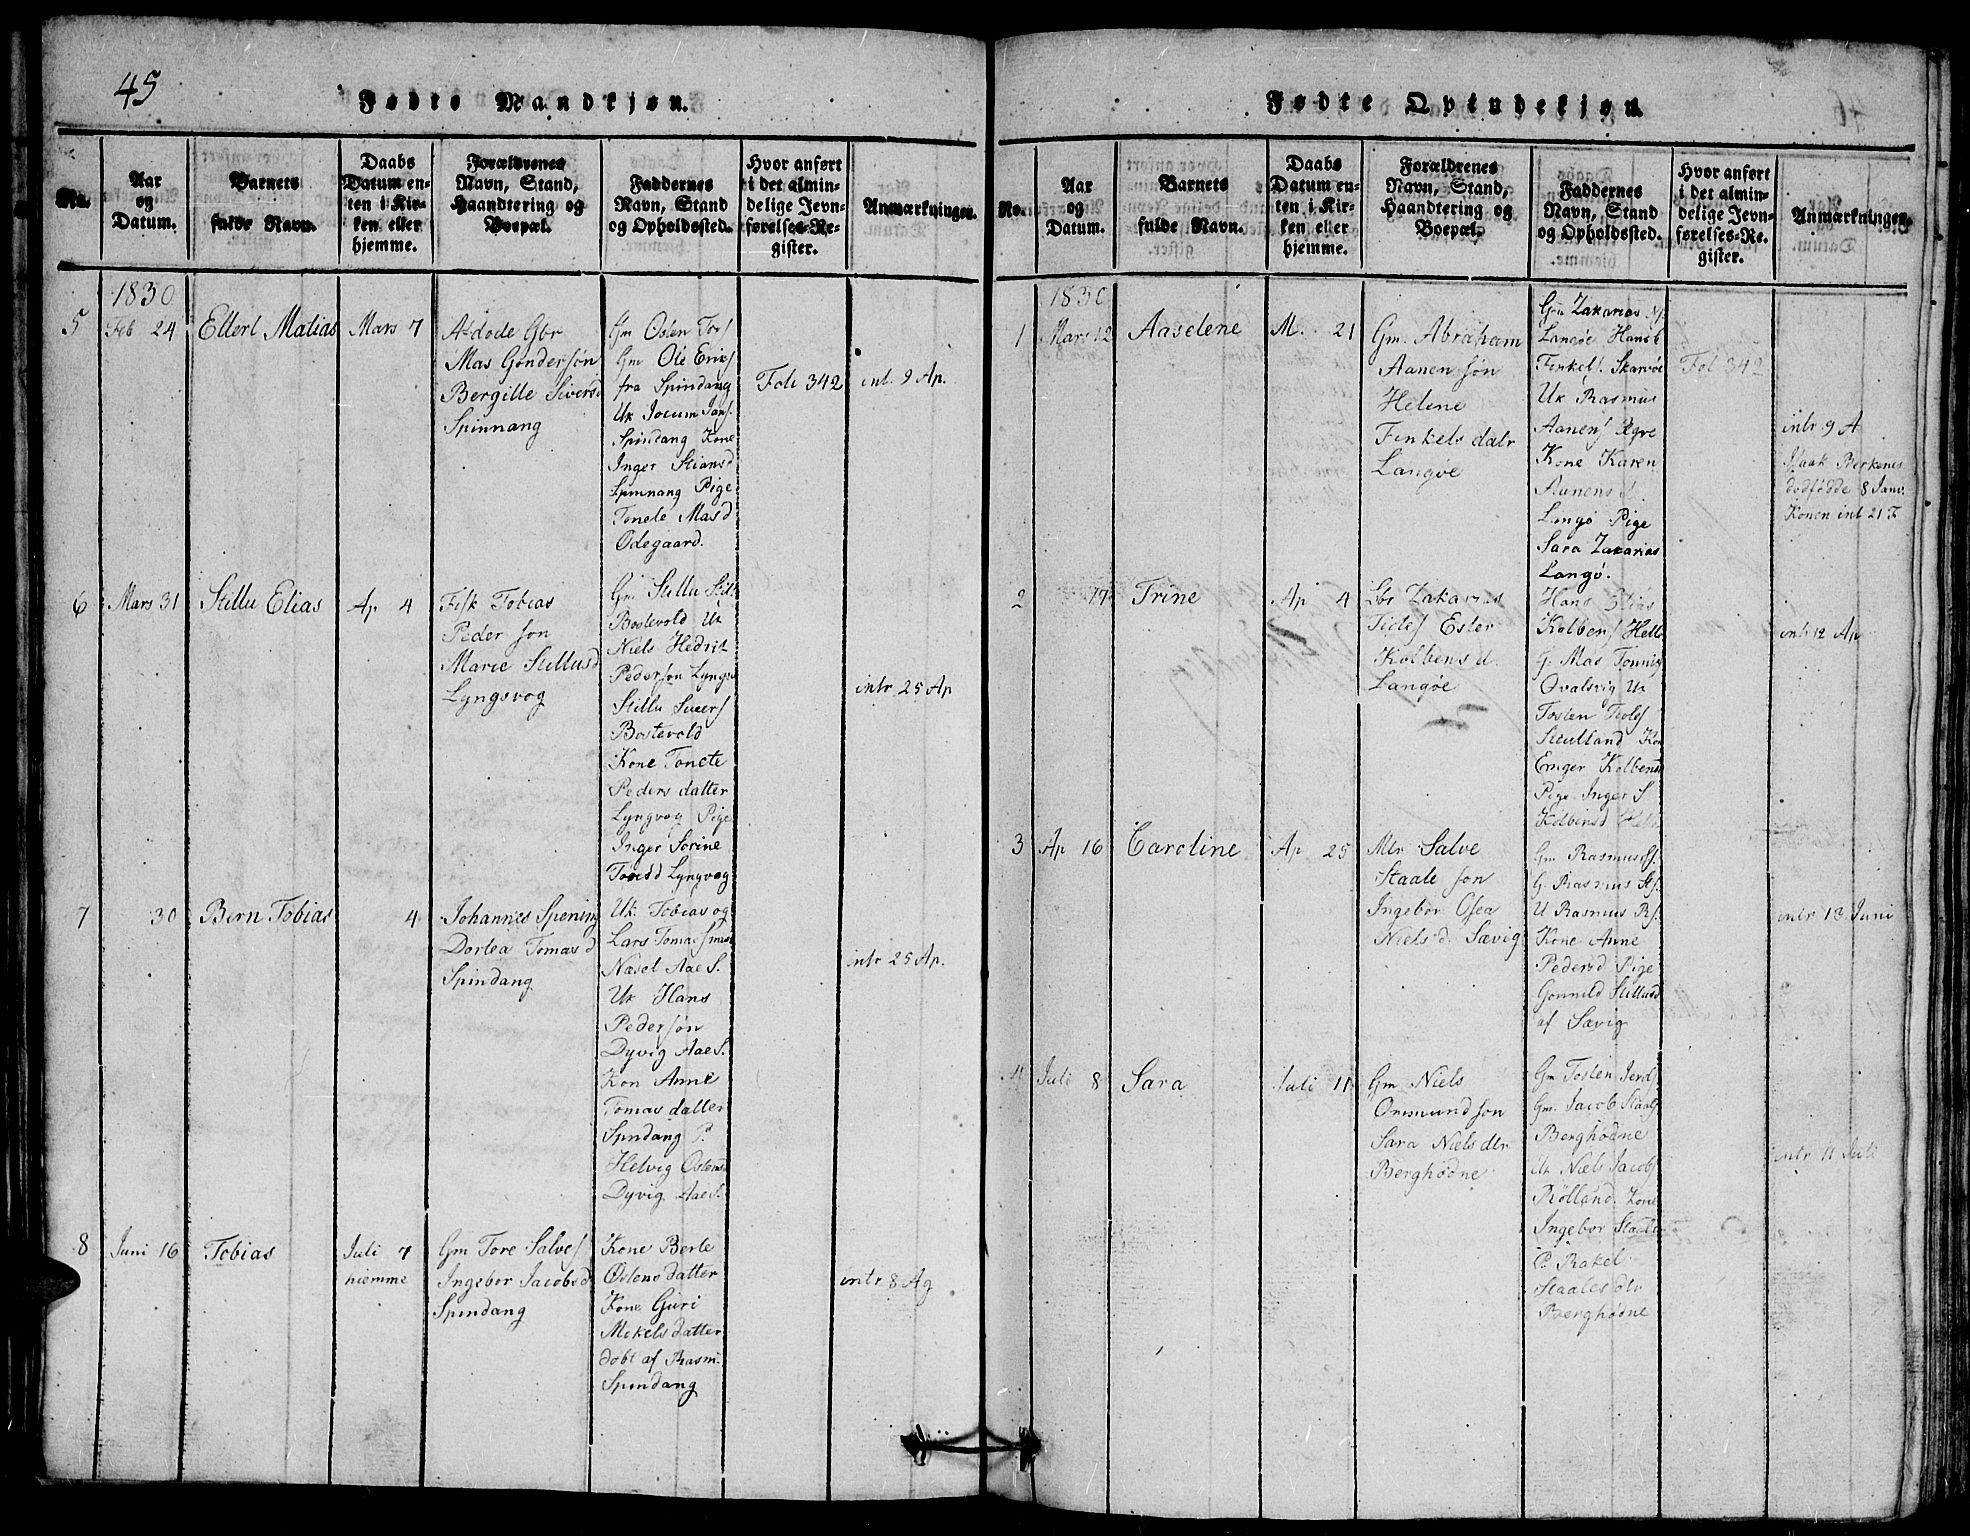 45
Fødte Mandkjøn.
No.
Aar
og
Datum.
Barnets
fulde Navn.
Daabs
Datum en-
ten i Kir-
ken eller
hjemme.
Forældrenes
Navn, Stand,
Haandtering og
Boepæl.
Faddernes
Navn, Stand
og Opholdssted.
Hvor anført
i det almin-
delige Jevn-
førelses-Re-
gister.
Anmærkninger.
1830
5
Feb 24
Ellert Matias
Mars 7
Mas Gondersøn
Bergille Siversd
Spinnang
Gm Osten Torſ
Gm Ole Erikſ
fra Spindang
Uk Jocum Janſ.
Spindang Kone
Inger Stiansd
Spinnang Pige
Tonele Masd
Odegaard.
Foli 342
int. 9 Ap.
6
Mars 31
Stillu Elias
Ap 4
Fisk Tobias
Peder ſon
Marie Stillusd
Lyngsvog
Gm Stillu
Bostevold Uk
Niels Hedrik
Pederſon Lyngs
Stillu Siverſ
Bostevold
Kone Toncte
Peders datter
Lyngvog Pige
Inger Sorine
Lyngvog
intr 25 Ap
7
30
Bern Tobias
4
Johannes Spening
Dortea Tomas d
Spindang
Uk. Tobias og
Lars Tomasſ
Næsel Aae S.
Uk Hans
Pederſøn
Dyvig Aae S.
Kon Anne
Tomas datter
Spindang P.
Helvig Ostens
Dyvig Aae S.
intr 25 Ap.
8
Juni 16
Tobias
Juli 7
hiemme
Gm Tore Salveſ
Ingebor Jacobsd
Spindang
Kone Berte
Ostens datter
Kone Guri
Mekels datter
dobt af Rasm.
Spindang
intr 8 Ag
Fødte Qvindekjøn.
No.
Aar
og
Datum.
Barnets
fulde Navn.
Daabs
Datum en-
ten i Kir-
ken eller
hjemme.
Forældrenes
Navn, Stand,
Haandtering og
Boepæl.
Faddernes
Navn, Stand
og Opholdssted.
Hvor anført
i det almin-
delige Jevn-
førelses-Re-
gister.
Anmærkninger.
1830
1
Mars 12
Aaselene
M. 21
Gm. Abraham
Aanen søn
Helene
Fenkels datr
Langøe
Gm Zakarias
Langøe Hans
Fenkelſ. Skarvøe
Uk Rasmus
Aanenſ
Kone Karen
Aanens d.
Langø Pige
Sara Zakarias
Langø.
Fol 342
intr 9 A
Isaak Berkenes
dodfødde 8 Janv.
Konen int 21 F
2
19
Trine
Ap 4
Lbr Zakarias
Ester
Kolbens d.
Langøe
Hans Elias
Kolbenſ Helle
G. Mas Tonnis
Qvalsvig Uk
Tosten
Kon
Kolbens
Pige Inger S
Kolbensd
intr 12 Ap
3
Ap 16
Caroline
Ap 25
Mtr Salve
Staale ſon
Ingebor Osea
Niels d. Sævig
Gm Rasmus Sſ.
G. Rasmus Stſ.
U Rasmus Rſ.
Kone Anne
Pedersd Pige
Gonnild Stillusd
af Sævig
intr 13 Juni
4
Juli 8
Sara
Juli 11
Gm Niels
Omund ſon
Sara Niels dtr
Berghodne
Gm Tosten
Gm. Jacob Staalſ
Berghodne
Uk Niels Jacobſ
Rolland. Kone
Ingebor
P. Rakel
Staales dtr
Berghodne
intr 11 Juli